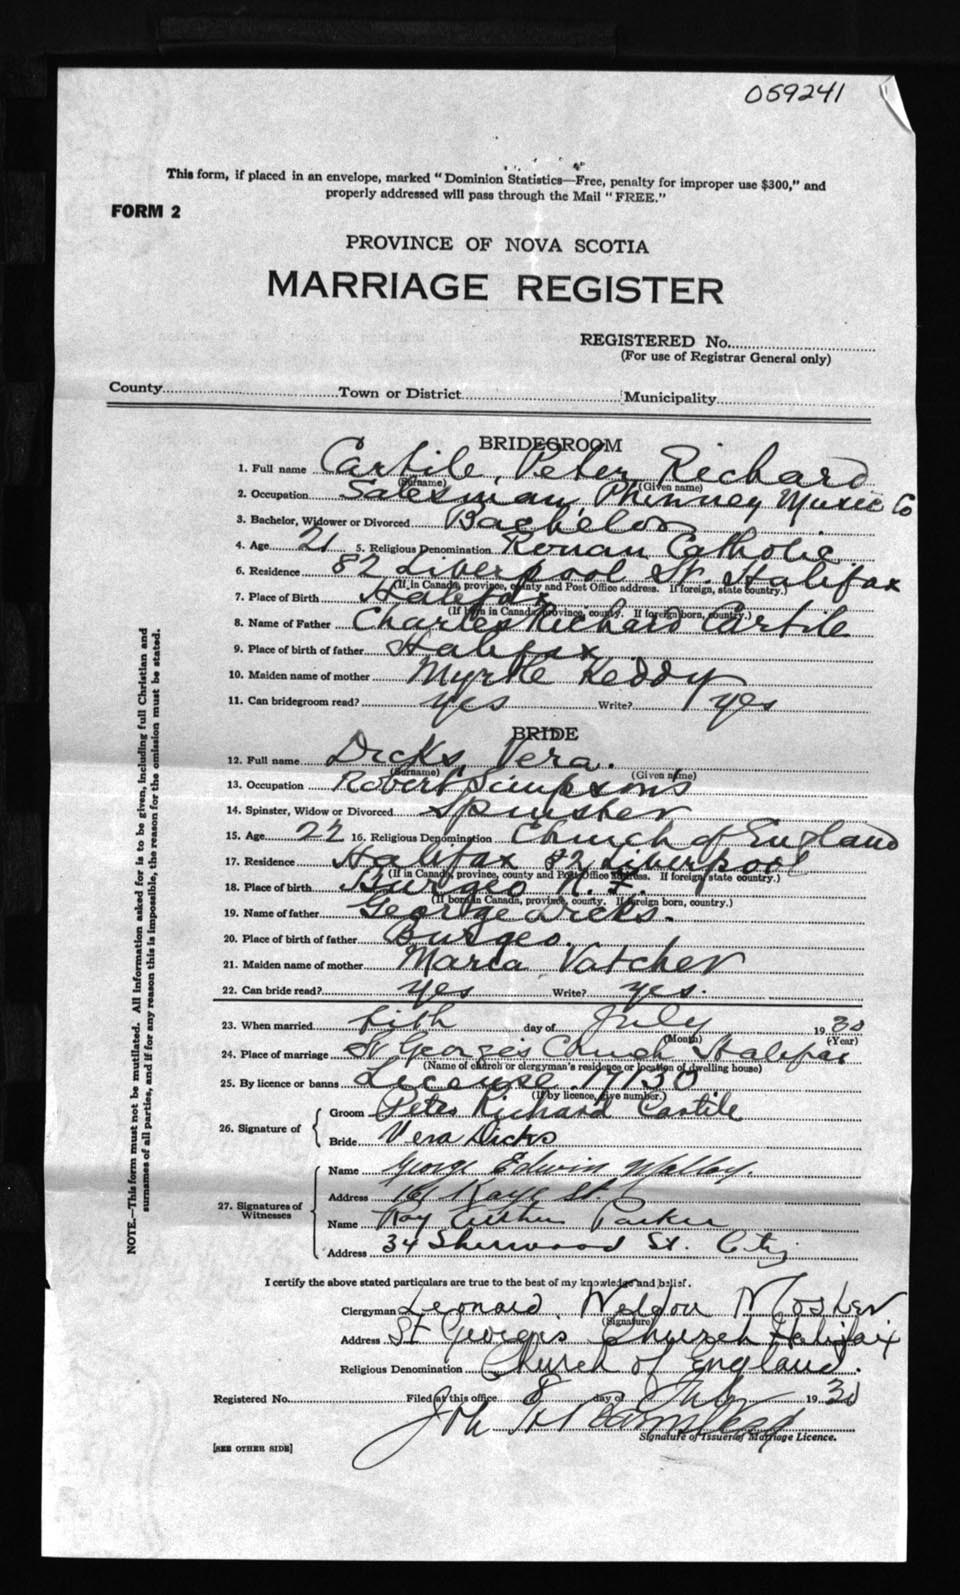 059241
This form, if placed in an envelope, marked "Dominion Statistics—Free, penalty for improper use $300," and
properly addressed will pass through the Mail "FREE."
FORM 2
PROVINCE OF NOVA SCOTIA
MARRIAGE REGISTER
REGISTERED No.
(For use of Registrar General only)
County Town or District Municipality
BRIDEGROOM
1. Full name Cartile, Peter Richard
(Surname) (Given name)
2. Occupation Salesman Phinney Music Co
3. Bachelor, Widower or Divorced Bachelor
4. Age 21 5. Religious Denomination Roman Catholic
6. Residence 82 Liverpool St. Halifax
(If in Canada, province, county and Post Office address. If foreign, state country.)
7. Place of Birth Halifax
(If born in Canada, province, county. If foreign born, country.)
8. Name of Father Charles Richard Cartile
9. Place of birth of father Halifax
10. Maiden name of mother Myrtle Keddy
11. Can bridegroom read? yes Write? yes
BRIDE
12. Full name Dicks, Vera.
(Surname) (Given name)
13. Occupation Robert Simpson's
14. Spinster, Widow or Divorced Spinster
15. Age 22 16. Religious Denomination Church of England
17. Residence Halifax 82 Liverpool
(If in Canada, province, county and Post Office address. If foreign, state country.)
18. Place of birth Burgeo N. F.
(If born in Canada, province, county. If foreign born, country.)
19. Name of father George Dicks.
20. Place of birth of father Burgeo.
21. Maiden name of mother Maria Vatcher
22. Can bride read? yes Write? yes.
23. When married fifth day of July 1930
(Month) (Year)
24. Place of marriage St George's Church Halifax
(Name of church or clergyman's residence or location of dwelling house)
25. By licence or banns License 17130
(If by licence, give number.)
26. Signature of Groom Peter Richard Cartile
Bride Vera Dicks
27. Signatures of Witnesses Name George Edwin Malloy.
Address Kaye St.
Name Roy Arthur Parker
Address 34 Sherwood St. City
I certify the above stated particulars are true to the best of my knowledge and belief.
Clergyman Leonard Weldon Mosher
(Signature)
Address St George's Church Halifax
Religious Denomination Church of England.
Registered No. Filed at this office 8 day of July 1930
Signature of Issuer of Marriage Licence.
[SEE OTHER SIDE]
NOTE.—This form must not be mutilated. All information asked for is to be given, including full Christian and
surnames of all parties, and if for any reason this is impossible, the reason for the omission must be stated.